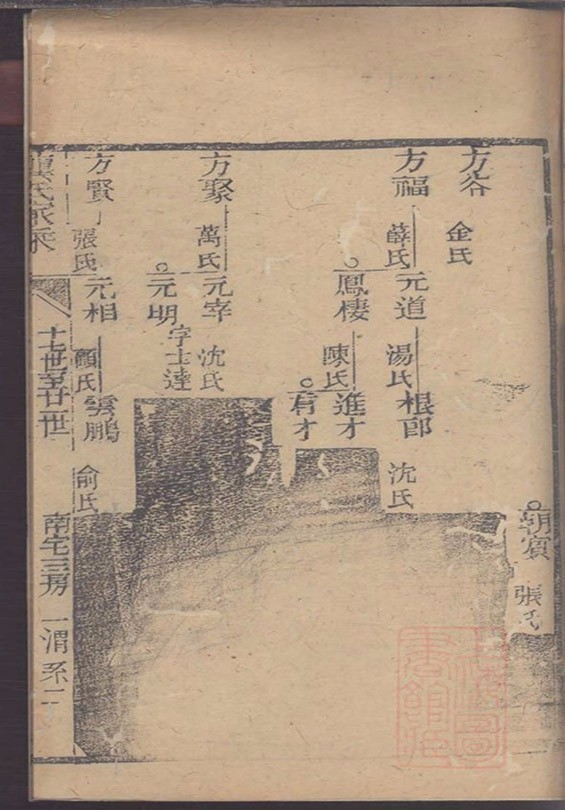 方谷
金氏
方福
薛氏
元道
湯氏
根郎
沈氏
鳳棲
陳氏
進才
有才
朝賓
張氏
方聚
萬氏
元宰
沈氏
元明
字士達
方賢
張氏
元相
顧氏
雲鵬
俞氏
氏家乘
十七世至廿一世
南宅三房
一渭系二